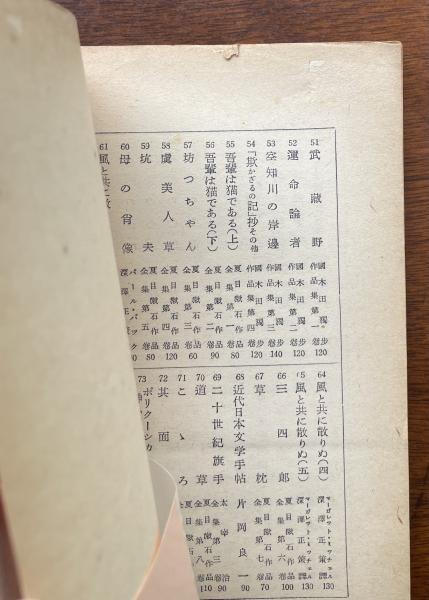 51 武蔵野 國木田獨步作品集第一卷 120
52 運命論者 國木田獨步作品集第二卷 120
53 空知川の岸邊 國木田獨步作品集第三卷 140
54 「欺かざるの記」抄その他 國木田獨步作品集第四卷 120
55 吾輩は猫である(上) 夏目漱石作品全集第一卷 80
56 吾輩は猫である(下) 夏目漱石作品全集第二卷 90
57 坊つちやん 夏目漱石作品全集第三卷 60
58 虞美人草 夏目漱石作品全集第四卷 120
59 坑夫 夏目漱石作品全集第五卷 80
60 母の肖像 パール・バック 深澤正策
61 風と共に散
64 風と共に散りぬ(四) マーガレット・ミツチェル 深澤正策譯 130
65 風と共に散りぬ(五) マーガレット・ミツチェル 深澤正策譯 130
66 三四郎 夏目漱石作品全集第六卷 100
67 草枕 夏目漱石作品全集第七卷 70
68 近代日本文学手帖 片岡良一 90
69 二十世紀旗手 太宰治 全集第三卷 90
70 道草 夏目漱石作品全集第八卷 110
71 こゝろ 夏目漱石
72 其面
73 ボリクーシカ